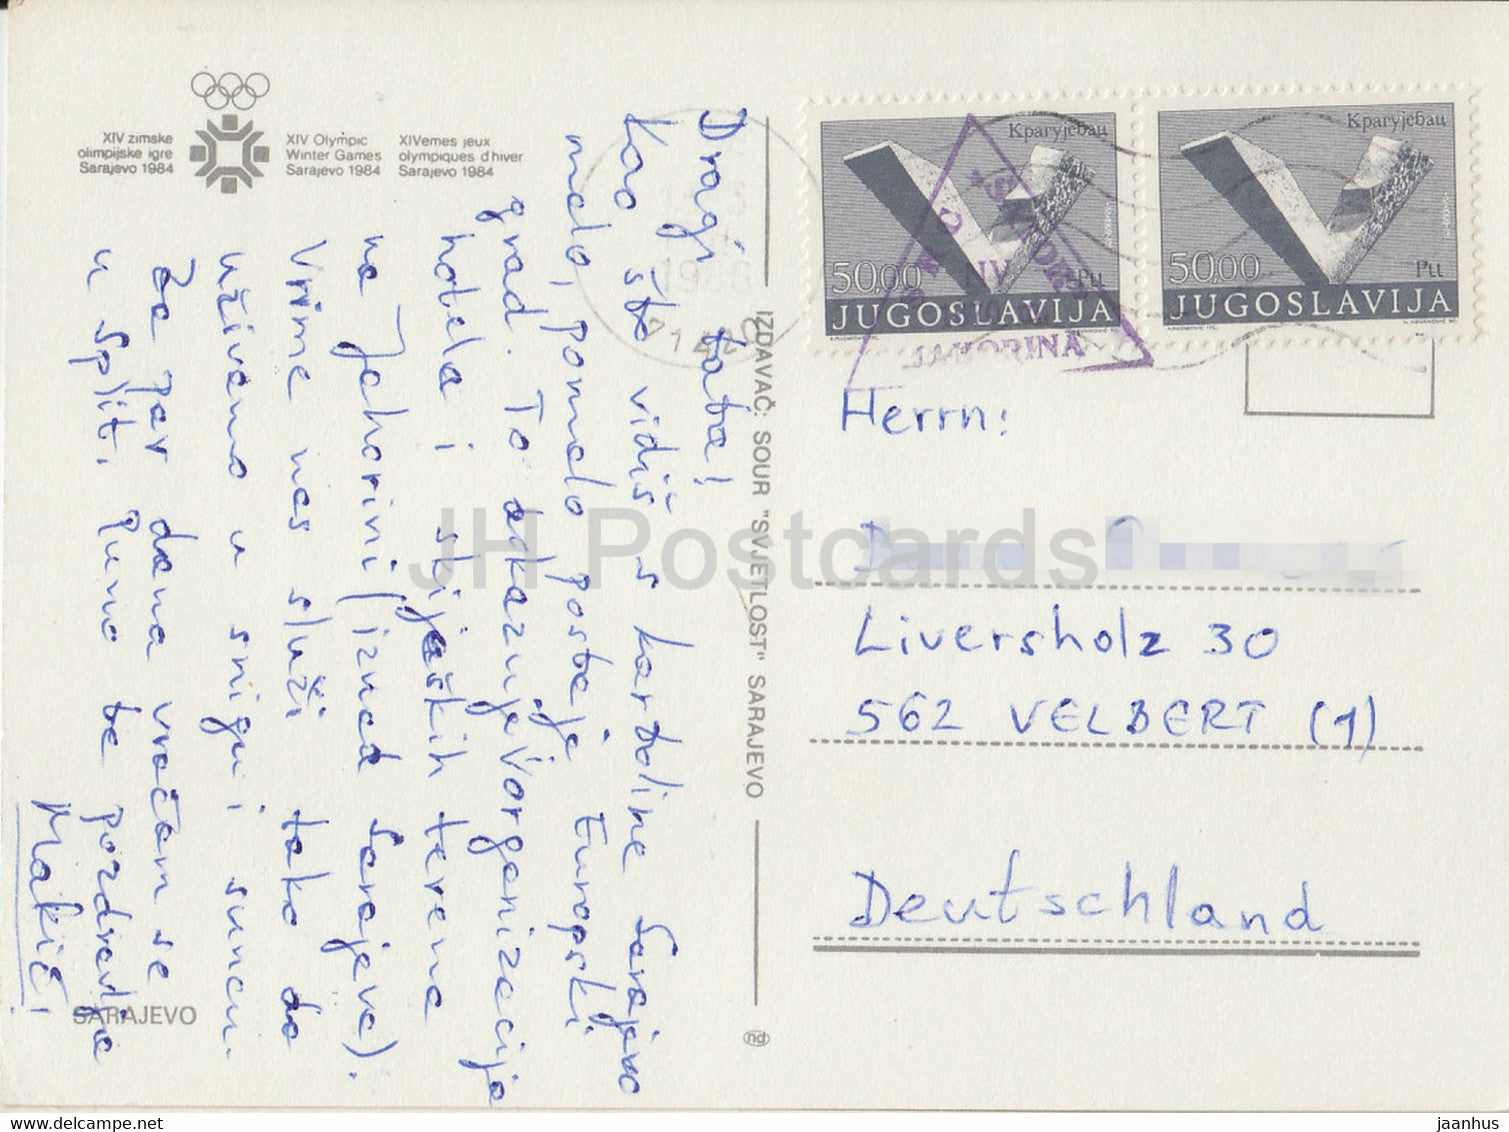 XIV zimske
olimpijske igre
Sarajevo 1984
XIV Olympic
Winter Games
Sarajevo 1984
XIVemes jeux
olympiques d'hiver
Sarajevo 1984
Dragi tata!
Kao što vidiš s kartoline Sarajevo
malo, pomalo postaje Europski
grad. To dokazuje organizacija
hotela i skijaških terena
na Jahorini (iznad Sarajeva).
Vrime nas služi tako da
uživamo u snigu i suncu.
Za par dana vraćam se
u Split. Puno te pozdravlja
Makići
SARAJEVO
IZDAVAČ: SOUR "SVJETLOST" SARAJEVO
nd
Крагујевац
50,00 Ptt
JUGOSLAVIJA
Крагујевац
50,00 Ptt
JUGOSLAVIJA
IV
JAHORINA
Herrn:
Liversholz 30
562 VELBERT (1)
Deutschland
JH Postcards
www.delcampe.net
jaanhus